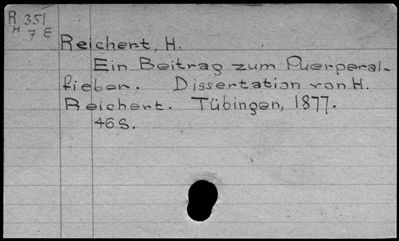 R 351
H 7 E
Reichert, H.
Ein Beitrag zum Puerperal-
fieber. Dissertation von H.
Reichert. Tübingen, 1877.
46 S.